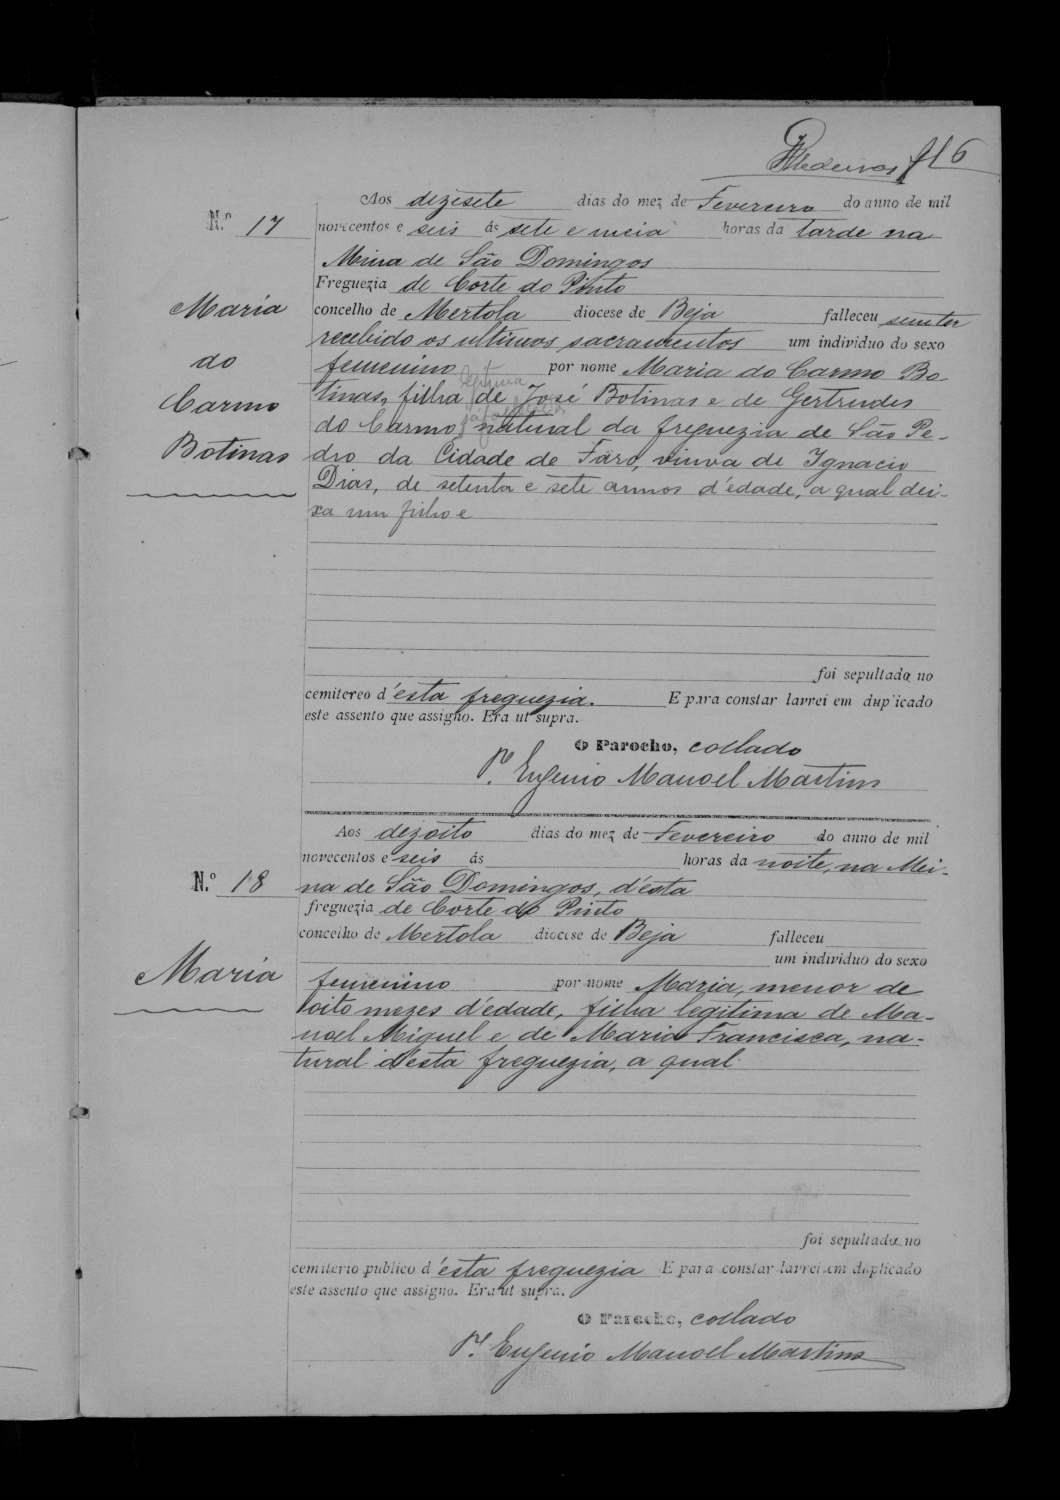 Medeiros 116
Nº 17
Aos dezesete dias do mez de Fevereiro do anno de mil
novecentos e seis ás sete e meia horas da tarde na
Mina de São Domingos
Freguezia de Corte do Pinto
concelho de Mertola diocese de Beja falleceu sem ter
recebido os ultimos sacramentos um individuo do sexo
femenino por nome Maria do Carmo Bo-
legitima
tinas, filha de José Botinas e de Gertrudes
já fallecidos
do Carmo, natural da freguezia de São Pe-
dro da Cidade de Faro, viuva de Ignacio
Dias, de setenta e sete annos d'edade, a qual dei-
xa um filho e
Maria
do
Carmo
Botinas
foi sepultada no
cemitereo d'esta freguezia. E para constar lavrei em duplicado
este assento que assigno. Era ut supra.
O Parocho, collado
Pe. Eugenio Manoel Martins
Nº 18
Aos dezoito dias do mez de Fevereiro do anno de mil
novecentos e seis ás horas da noite, na Mei-
na de São Domingos, d'esta
freguezia de Corte do Pinto
concelho de Mertola diocese de Beja falleceu
um individuo do sexo
femenino por nome Maria, menor de
oito mezes d'edade, filha legitima de Ma-
noel Miguel e de Maria Francisca, na-
tural d'esta freguezia, a qual
Maria
foi sepultada no
cemiterio publico d'esta freguezia E para constar lavrei em duplicado
este assento que assigno. Era ut supra.
O Parocho, collado
Pe. Eugenio Manoel Martins